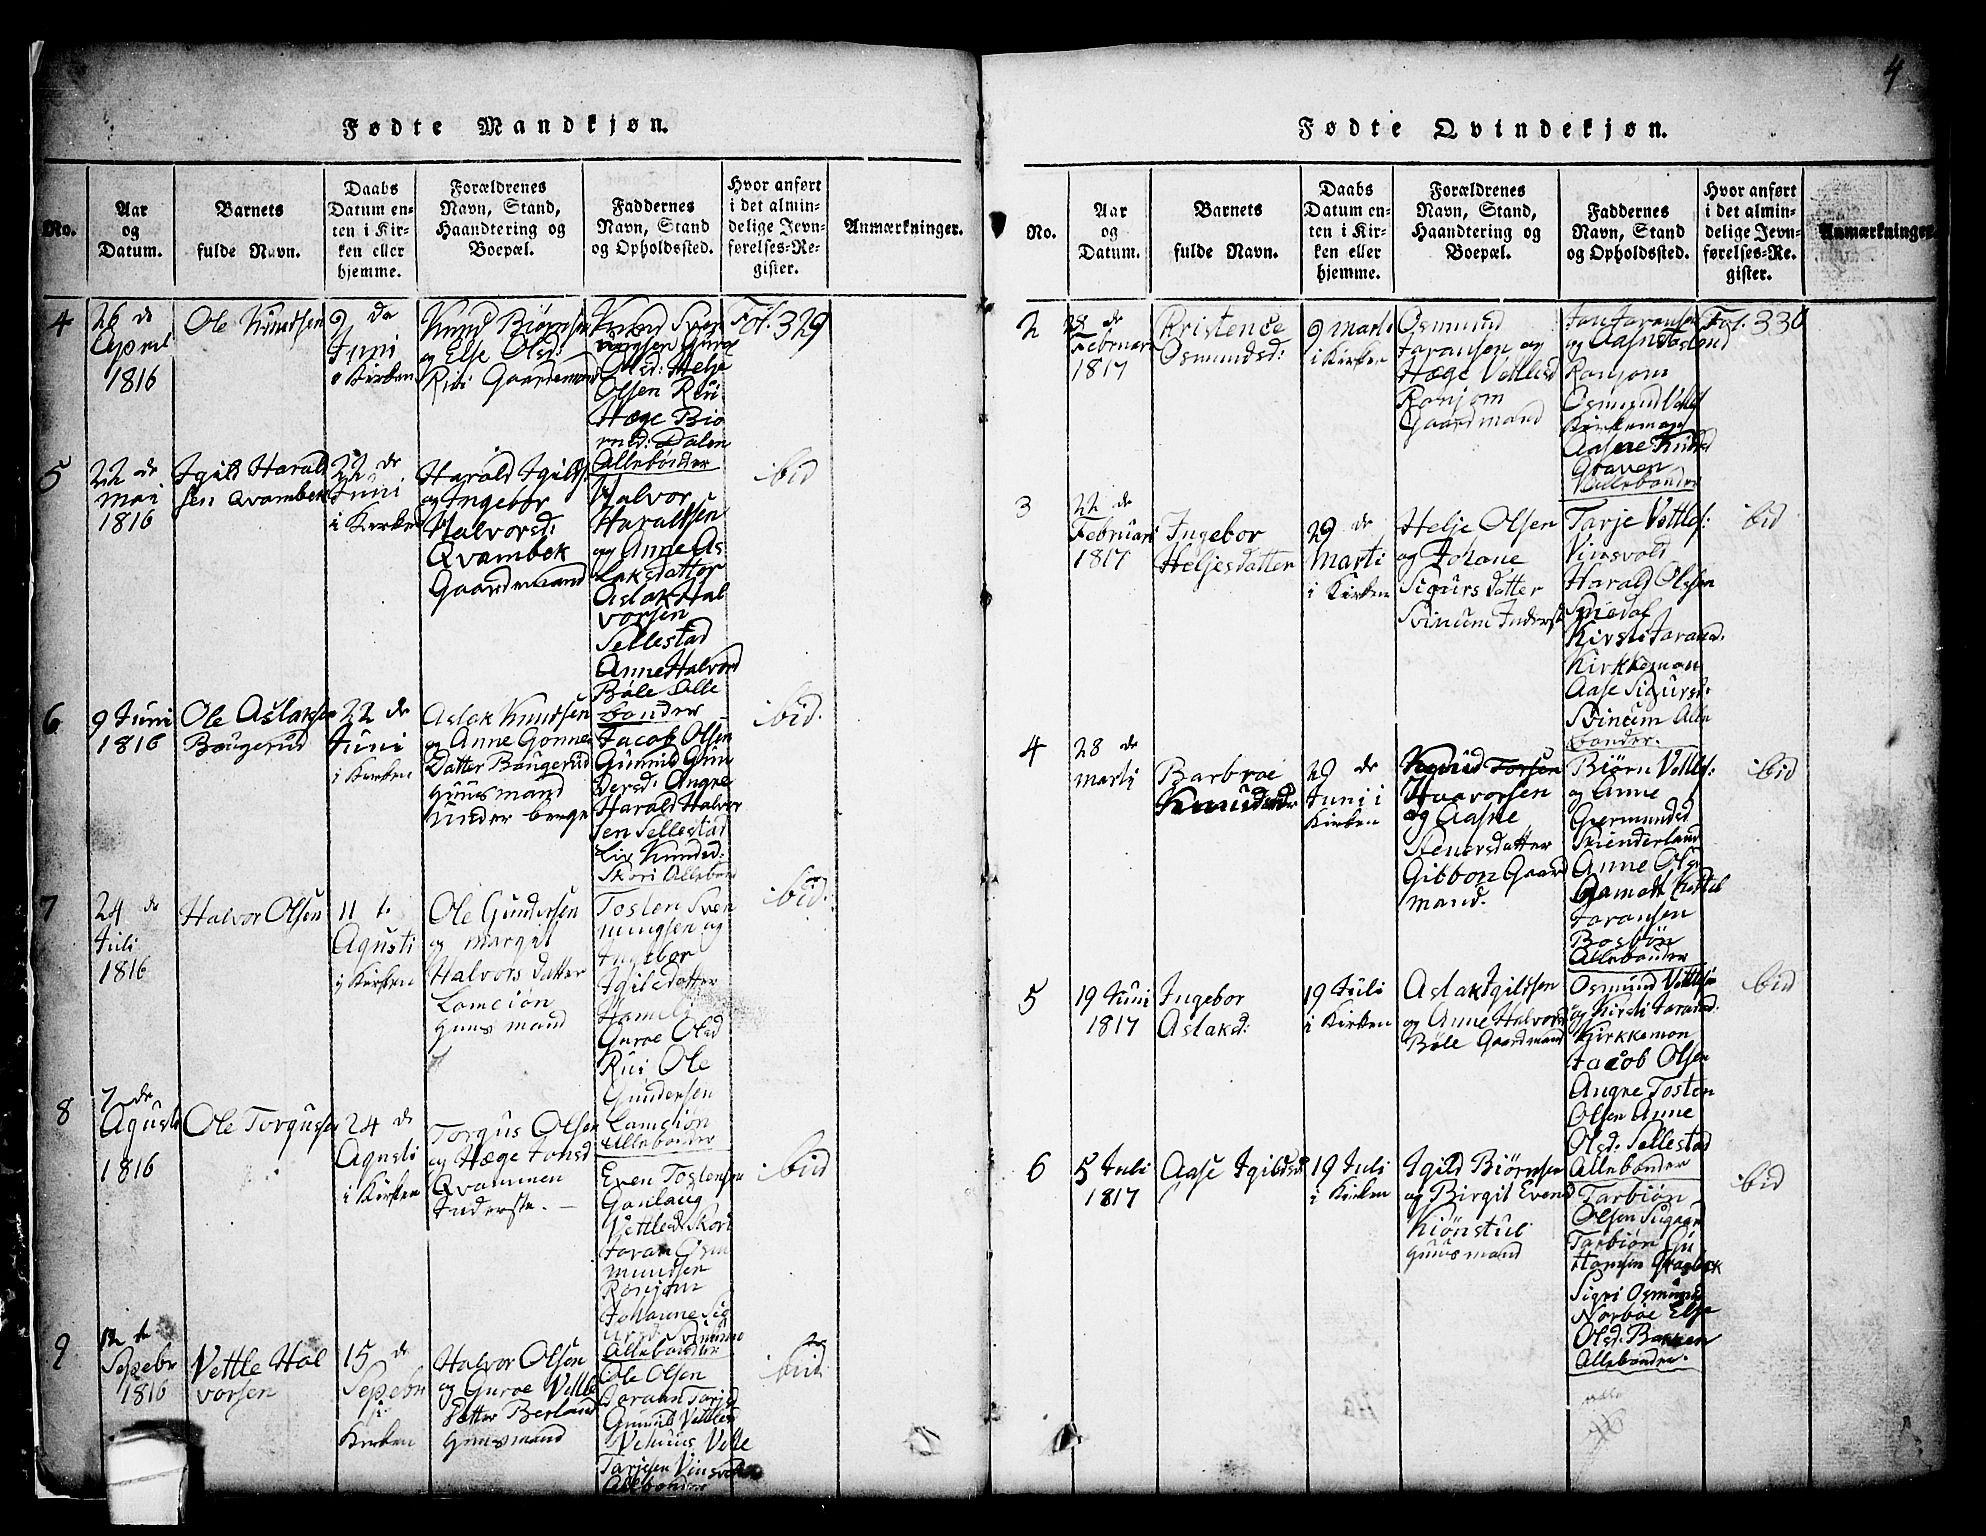 4
Fødte Mandkjøn.
No.
Aar
og
Datum.
Barnets
fulde Navn.
Daabs
Datum en-
ten i Kir-
ken eller
hjemme.
Forældrenes
Navn, Stand,
Haandtering og
Boepæl.
Faddernes
Navn, Stand
og Opholdssted.
Hvor anført
i det almin-
delige Jevn-
førelses-Re-
gister.
Anmærkninger.
4
26 de
Apriil
1816
Ole Knudsen
9 de
Juni
i Kirken
Knud Biørnsen
og Else Olsd:
Rui Gaardemand
Knud Sven
ningsen Guroe
Olsd: Helje
Olsen Rui
Hæge Biø
rnsd: Dalen
Allebonder
Fol. 329
5
22 de
Mai
1816
Igild Harald
sen Qvambek
22 de
Juni
i Kirken
Harald Igilds:
og Ingebor
Halvorsd:
Qvambek
Gaardemand
Halvor
Haraldsen
og Anne As
laksdatter
Aslak Hal
vorsen
Sellestad
Anne Halvord
Bøle Alle
bonder
ibid
6
9 Juni
1816
Ole Aslaksen
Baugerud
22 de
Juni
i Kirken
Aslak Knudsen
og Anne Gonne
Datter Baugerud
Huusmand
under berge
Jacob Olsen
Gunnild Gun
dersd: Angne
Harald Halvor
sen Sellestad
Liv Knudsd:
Skori Allebon
ibid.
7
24 de
Juli
1816
Halvor Olsen
11 te
Agusti
i Kirken
Ole Gundersen
og Margit
Halvors datter
Lomeiøn
Huusmand
Tosten Sven
ningsen og
Ingebor
Igilsdatter
Guroe Olsd
Rui Ole
Gundersen
Lomeiøn
Allebonder
ibid.
8
7 de
Agusti
1816
Ole Torgussen
24 de
Agusti
i Kirken
Torgus Olsen
og Hæge Jonsd
Qvammen
Inderste.
Even Tostensen
Gonlaug
Vettled Skori
Joran Osm
mundsen
Ronjom
Johanne Sig
ursd Svinum
Allebonder
ibid
9
12 te
Sepebr
1816
Vettle Hal
vorsen
15 de
Sepebr
i
Kirken
Halvor Olsen
og Guroe Vettle
Datter Berland
Huusmand
Ole Olsen
Joraan Tarjsd
Gunild Vettles
Vettle
Tarjesen Vinsvol
Allebonder
ibid
Fødte Qvindekjøn.
No.
Aar
og
Datum.
Barnets
fulde Navn.
Daabs
Datum en-
ten i Kir-
ken eller
hjemme.
Forældrenes
Navn, Stand,
Haandtering og
Boepæl.
Faddernes
Navn, Stand
og Opholdssted.
Hvor anført
i det almin-
delige Jevn-
førelses-Re-
gister.
Anmærkninger.
2
28 de
Februari
1817
Kristence
Osmundsd:
9 Marti
i Kirken
Osmund
Jaransen og
Hæge Vettlesd
Ronjom
Gaardmand
Jan Jaransen
og Aasne
Ronjom
Osmund Vettles
Kirkeman
Aasne Knudsd
Graven
Allebonder
Fol. 330
3
22 de
Februari
1817
Ingebor
Heljesdatter
29 de
Marti
i Kirken
Helje Olsen
og Johane
Sigursdatter
Svinum Inderst
Tarje Vettles:
Vinsvold
Harald Olsen
Kirsti Jarand.
Kirkkeman
Aase Sigursd:
Svinum Alle
bonder.
ibid
4
28 de
Marty
Barbroe
29 de
Juni i
Kirken
Knud Torsen
Haavorsen
og Aasne
Stenersdatter
Gibbon Gaard
mand.
Biørn Vettles:
og Anne
Germundsd
Skienderland
Anne Olsd
Gamodt Kettel
Jaransen
Bosbøn
Allebonder
ibid
5
19 Juni
1817
Ingebor
Aslaksd:
19 Juli
i Kirken
Aslak Igildsen
og Anne Halvorsd
Bøle Gaardmand
Osmund Vettlesen
og Kirsti Jarand:
Kirkkemon
Jacob Olsen
Angne Tosten
Olsen Anne
Olsd: Sellestad
Allebonder
ibid
6
5 Juli
1817
Aase Igildsd
19 Juli
i Kirken
Igild Biørnsen
og Birgit Evend
Kiønstul
Huusmand
Tarbiøn
Olsen Sugaar
Tarbiøn
Hansen
Sigri Osmunds
Norbøe Else
Olsd: Bakken
Allebonder.
ibid